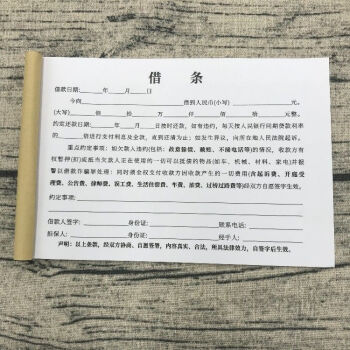 借 条
借款日期:______年____月____日
今向____________________借到人民币(小写)____________元。
(大写)____佰____拾____万____仟____佰____拾____元整。
约定还款日期:____年____月____日按时还款，如有违约，每天按人民银行同期贷款利率
的________倍进行支付利息及全款，直到还清为止；如发生异议，向所在地人民法院起诉。
重点约定事项：如欠款人违约(包括：故意赖偿、躺赖、不接电话等)的情况，收款方有
权暂押(扣)或抵当欠款人正在使用的一切可以抵债的物品(如车、机械、材料、家电)并报
警以借款诈骗罪处理；同时须全权支付收款方因收款产生的一切费用(含起诉费、开庭受
理费、公告费、律师费、误工费、生活住宿费、车费、油费、过桥过路费等)经双方自愿签字生效。
约定事项:
借款人签字: 身份证: 联系电话:
担保人: 身份证: 经手人:
声明：以上条款，经双方协商、自愿签署，内容真实、合法，所具法律效力，自签字后生效。